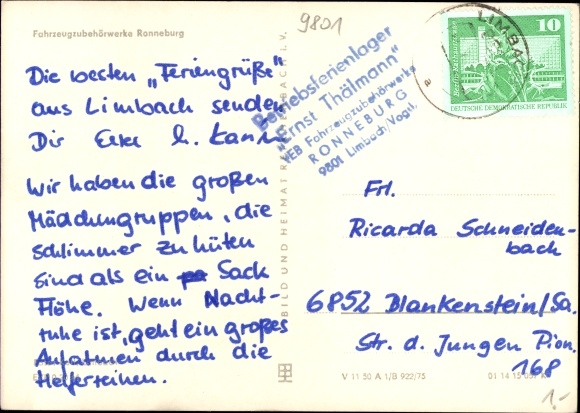 Fahrzeugzubehörwerke Ronneburg
9801
Die besten „Feriengrüße"
aus Limbach senden
Dir
Wir haben die großen
Mädchengruppen, die
schlimmer zu hüten
sind als ein Sack
Flöhe. Wenn Nacht-
ruhe ist, geht ein großes
Aufatmen durch die
Helferreihen.
Betriebsferienlager
"Ernst Thälmann"
VEB Fahrzeugzubehörwerke
RONNEBURG
9801 Limbach/Vogtl.
LIMBACH
10
DEUTSCHE DEMOKRATISCHE REPUBLIK
BILD UND HEIMAT REICHENBACH I. V.
Frl.
Ricarda Schneiden-
bach
6852 Blankenstein/Sa.
Str. d. Jungen Pion.
168
V 11 50 A 1/B 922/75
1,-